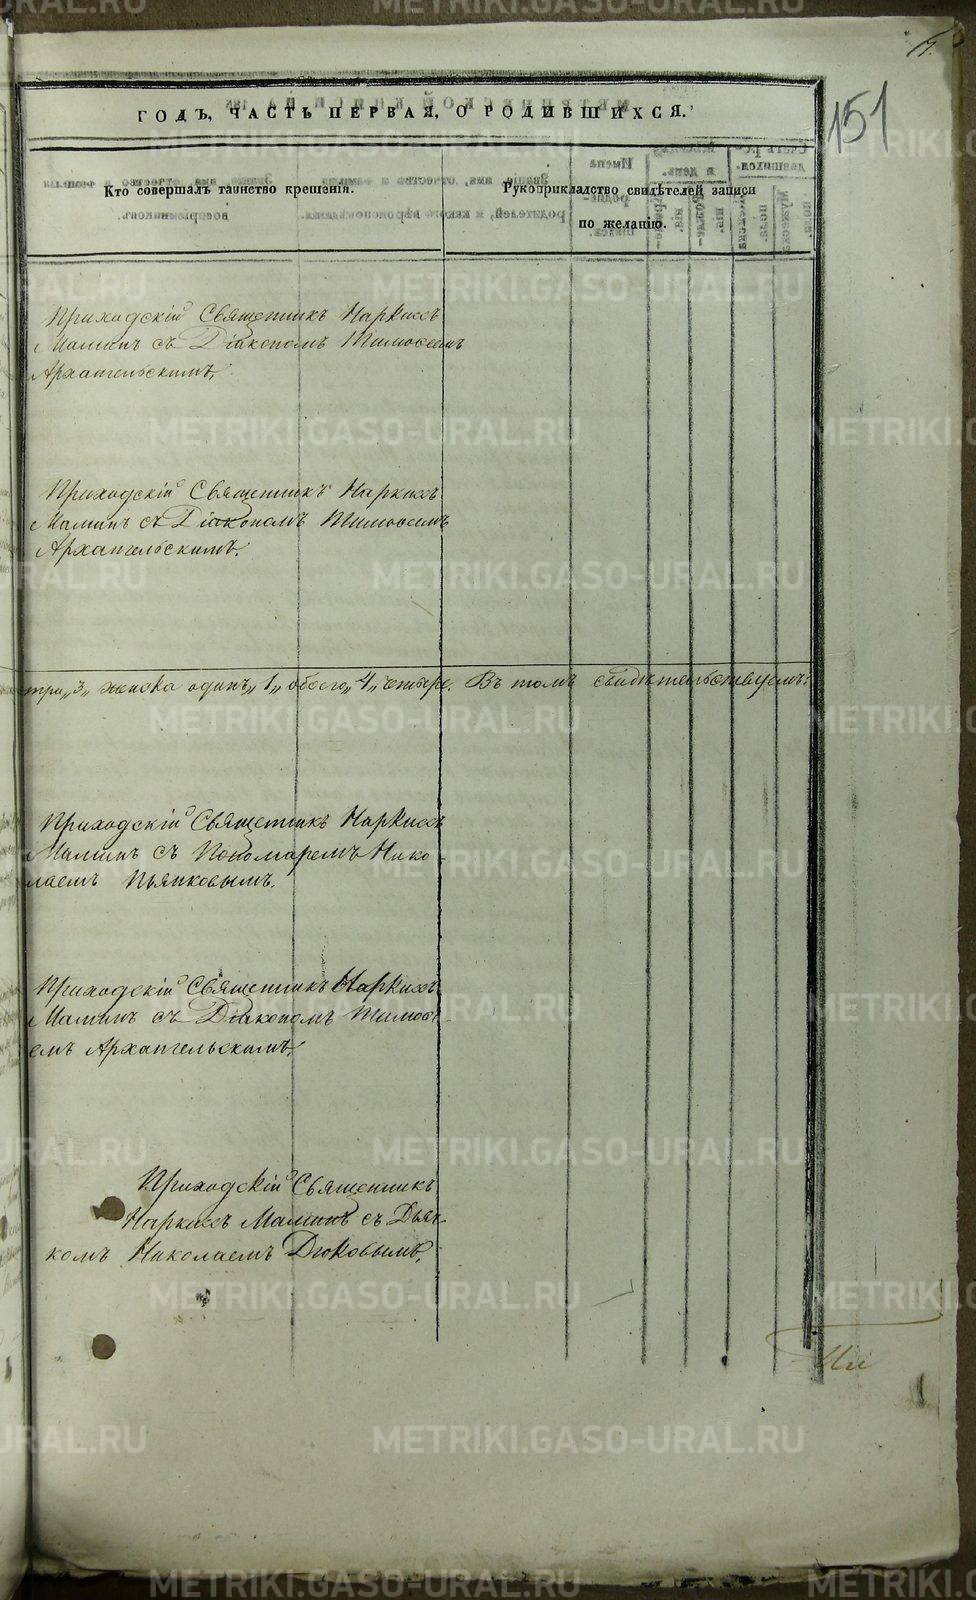 151
ГОДЪ, ЧАСТЬ ПЕРВАЯ, О РОДИВШИХСЯ.
Кто совершалъ таинство крещенія.
Рукоприкладство свидѣтелей записи
по желанію.
Приходскій Священникъ Наркисъ
Маминъ съ Діакономъ Тимоѳеемъ
Архангельскимъ.
Приходскій Священникъ Наркисъ
Маминъ съ Діакономъ Тимоѳеемъ
Архангельскимъ.
три „3„ женска одинъ „1„ обоего „4„ четыре. Въ томъ свидѣтельствуемъ:
Приходскій Священникъ Наркисъ
Маминъ съ Пономаремъ Нико-
лаемъ Пьянковымъ.
Приходскій Священникъ Наркисъ
Маминъ съ Діакономъ Тимоѳе-
емъ Архангельскимъ.
Приходскій Священникъ
Наркисъ Маминъ съ Дьяч-
комъ Николаемъ Дюковымъ.
METRIKI.GASO-URAL.RU